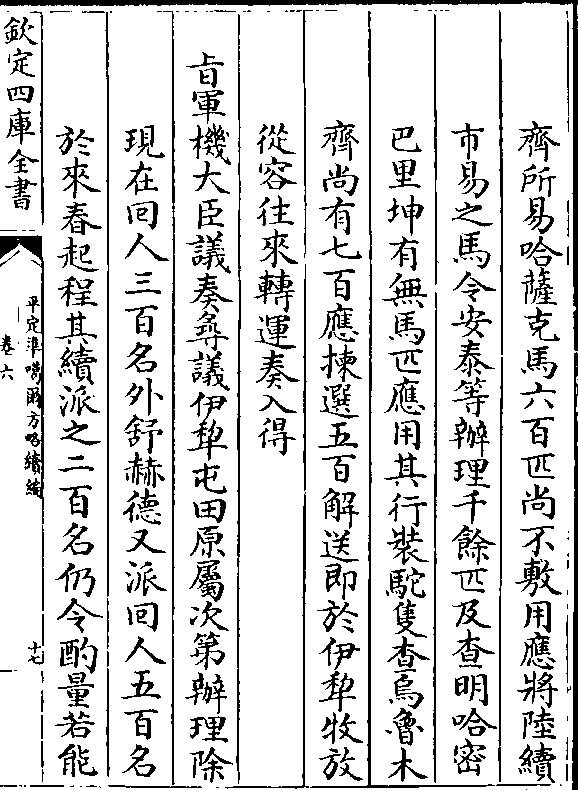 齊所易哈薩克馬六百匹尚不敷用應將陸續
市易之馬令安泰等辦理千餘匹及查明哈密
巴里坤有無馬匹應用其行裝駝隻查烏魯木
齊尚有七百應揀選五百解送即於伊犂牧放
從容往來轉運奏入得
旨軍機大臣議奏尋議伊犂屯田原屬次第辦理除
現在回人三百名外舒赫德又派回人五百名
於來春起程其續派之二百名仍令酌量若能
欽定四庫全書
平定準噶爾方略續編
卷六
十七